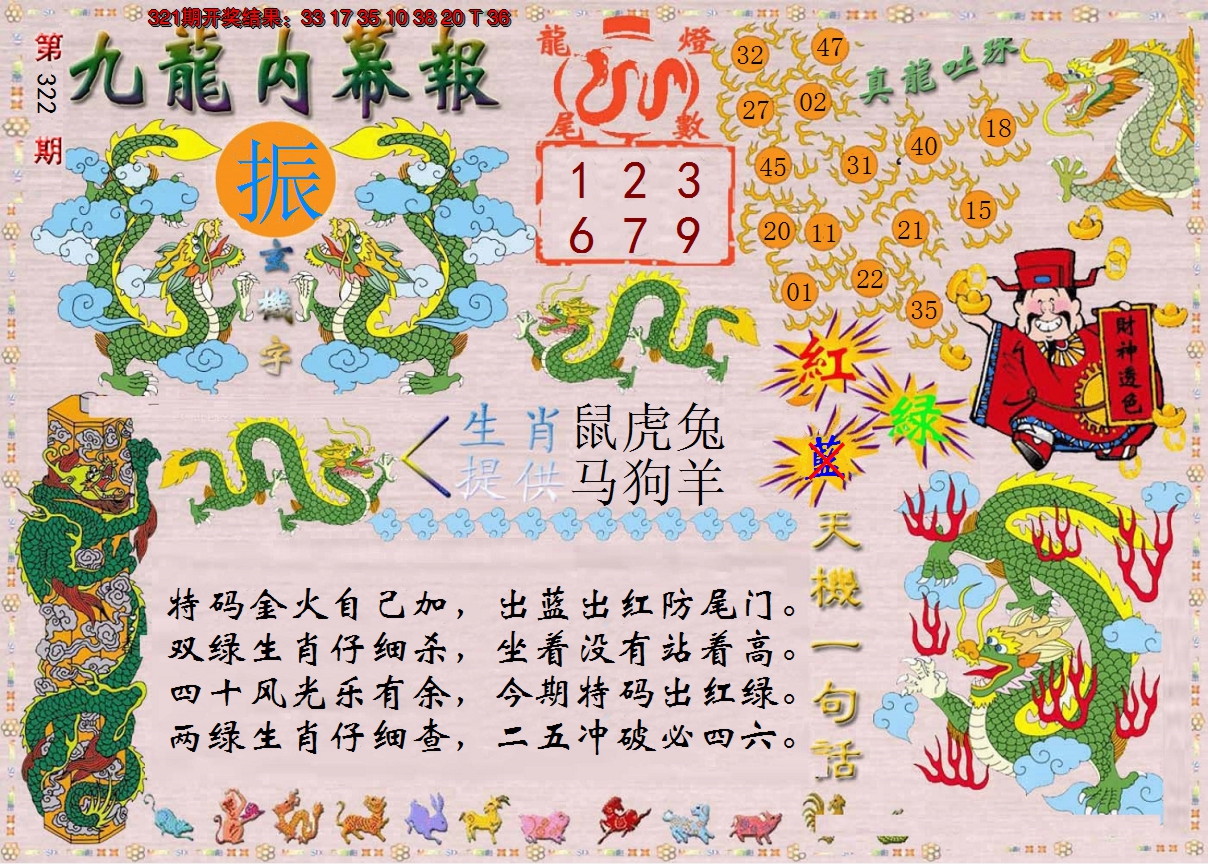 321期开奖结果：33 17 35 10 38 20 T 36
第322期
九龍内幕報
振
玄機字
龍燈
尾數
1 2 3
6 7 9
真龍吐珠
32 47
27 02
18
40
45 31
15
20 11 21
22
01
35
紅
绿
藍
財神透色
生肖 鼠虎兔
提供 马狗羊
特码金火自己加，出蓝出红防尾门。
双绿生肖仔细杀，坐着没有站着高。
四十风光乐有余，今期特码出红绿。
两绿生肖仔细查，二五冲破必四六。
天機一句話